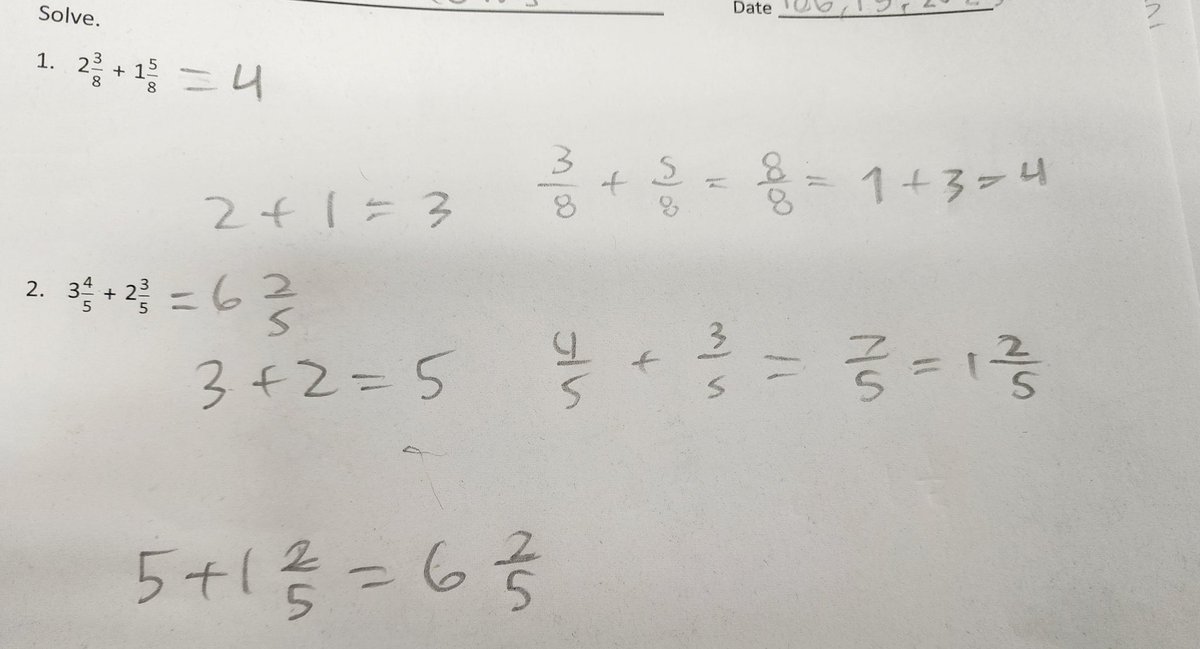 Solve.
Date
1. 2 3/8 + 1 5/8 = 4
2 + 1 = 3   3/8 + 5/8 = 8/8 = 1 + 3 = 4
2. 3 4/5 + 2 3/5 = 6 2/5
3 + 2 = 5   4/5 + 3/5 = 7/5 = 1 2/5
5 + 1 2/5 = 6 2/5